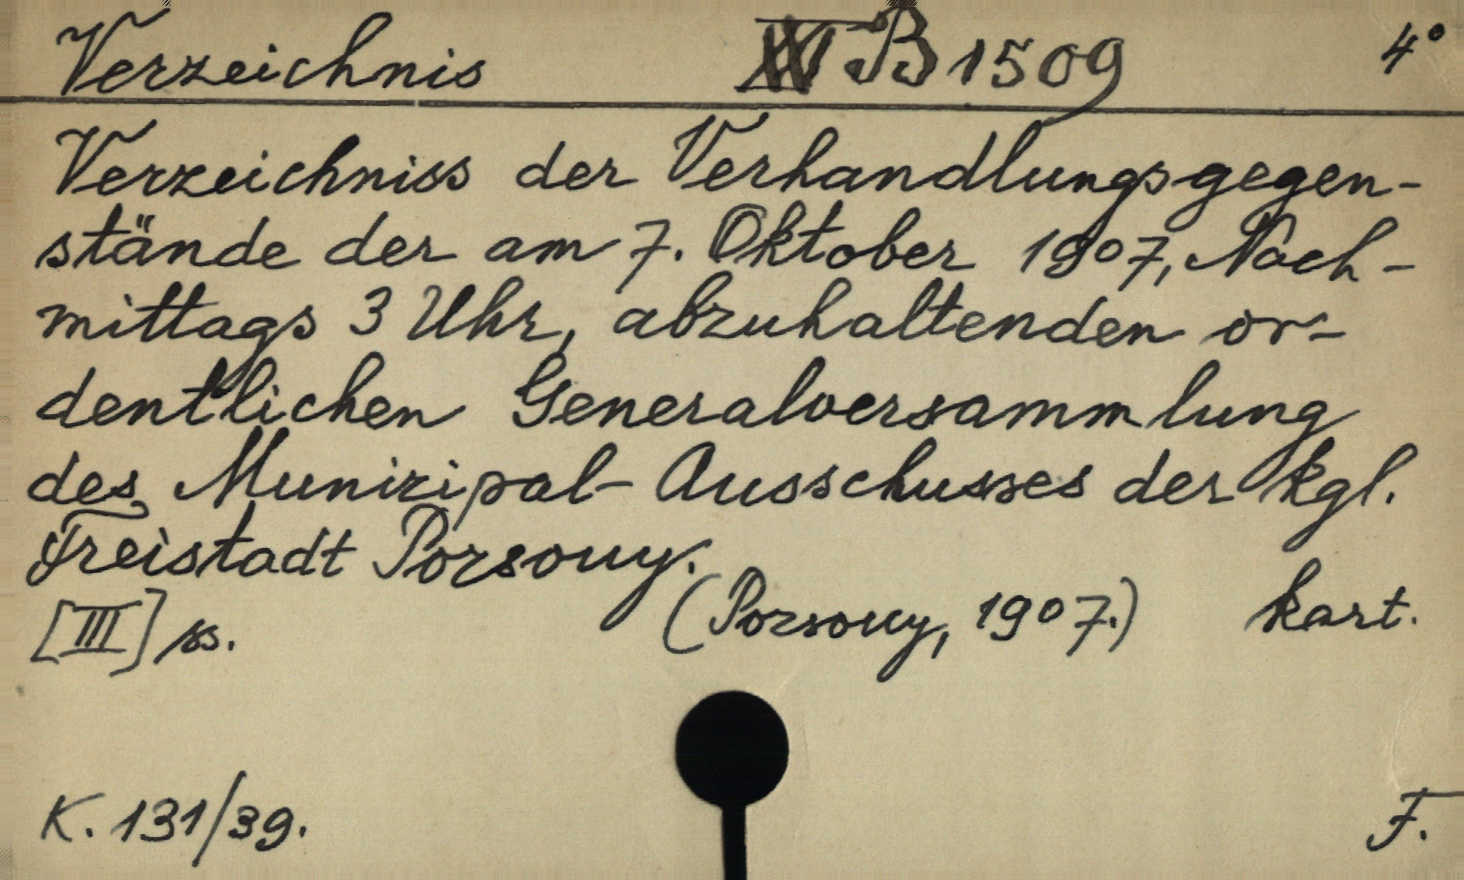 Verzeichnis XV B 1509 4°
Verzeichniss der Verhandlungsgegen-
stände der am 7. Oktober 1907, Nach-
mittags 3 Uhr, abzuhaltenden or-
dentlichen Generalversammlung
des Munizipal-Ausschusses der kgl.
Freistadt Pozsony.
[III] ss. (Pozsony, 1907.) kart.
K. 131/39. F.